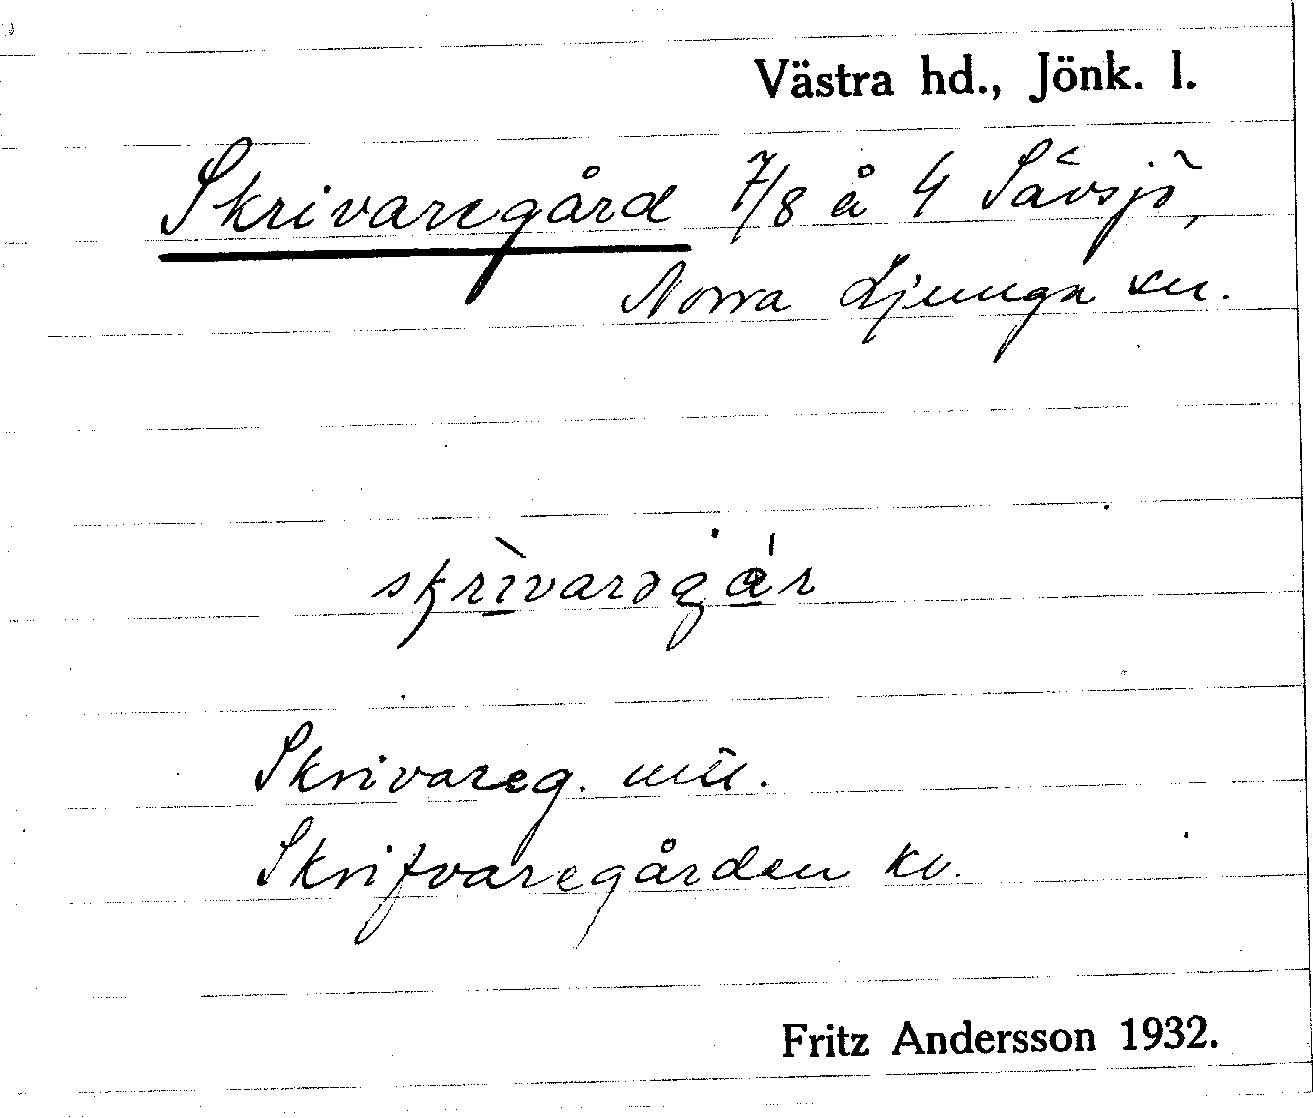 Västra hd., Jönk. l.
Skrivaregård 7/8 å 4 Sävsjö,
Norra Ljunga sn.
skrìvarəgá̊r
Skrivareg.
Skrifvaregården kv.
Fritz Andersson 1932.